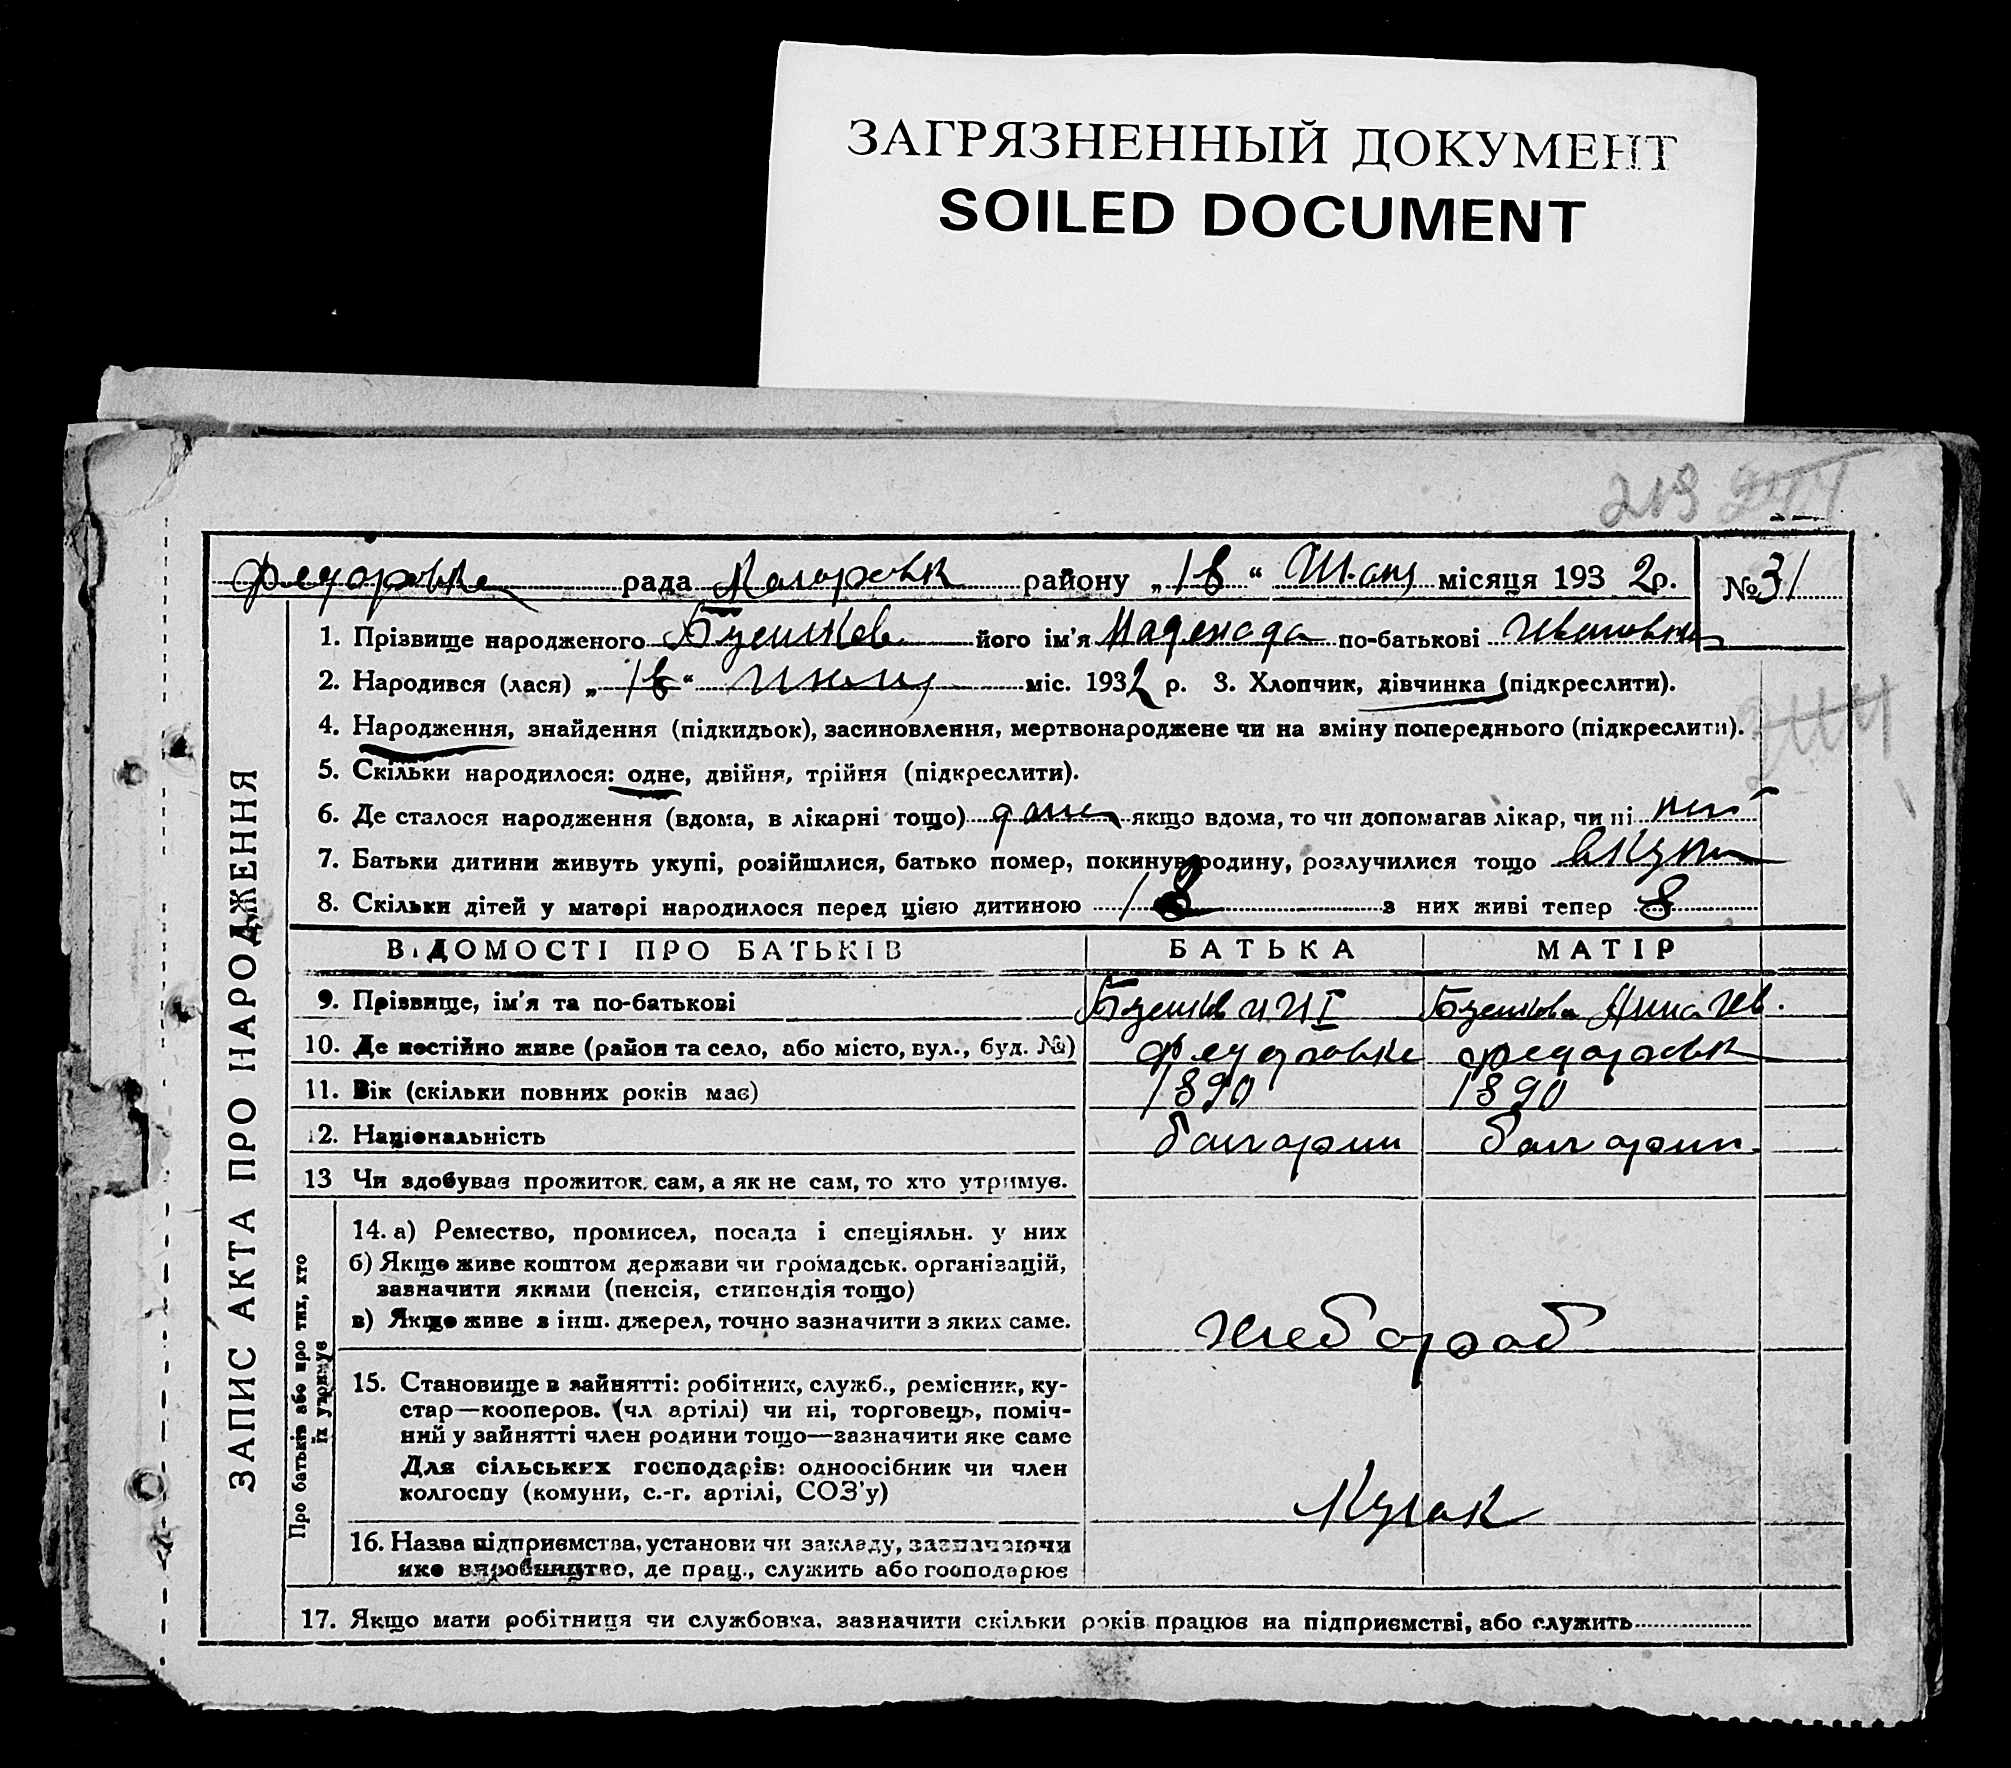 ЗАГРЯЗНЕННЫЙ ДОКУМЕНТ
SOILED DOCUMENT
213
Федоровке рада Коларовск району „18“ місяця 1932 р. № 31
1. Прізвище народженого Бушков його ім'я Надежда по-батькові Ивановна
2. Народився (лася) „18“ міс. 1932 р. 3. Хлопчик, дівчинка (підкреслити).
4. Народження, знайдення (підкидьок), засиновлення, мертвонароджене чи на зміну попереднього (підкреслити).
244
5. Скільки народилося: одне, двійня, трійня (підкреслити).
6. Де сталося народження (вдома, в лікарні тощо) дома якщо вдома, то чи допомагав лікар, чи ні
7. Батьки дитини живуть укупі, розійшлися, батько помер, покинув родину, розлучилися тощо вкупи
8. Скільки дітей у матері народилося перед цією дитиною з них живі тепер 8
ВІДОМОСТІ ПРО БАТЬКІВ БАТЬКА МАТІР
9. Прізвище, ім'я та по-батькові Бушков И И Бушкова Анна Ив.
10. Де постійно живе (район та село, або місто, вул., буд. №) Федоровке Федоровк
11. Вік (скільки повних років має) 1890 1890
12. Національність болгарин болгарин.
13 Чи здобуває прожиток сам, а як не сам, то хто утримує.
14. а) Ремество, промисел, посада і спеціяльн. у них
б) Якщо живе коштом держави чи громадськ. організацій,
зазначити якими (пенсія, стипендія тощо)
в) Якщо живе з інш. джерел, точно зазначити з яких саме.
хлебороб
15. Становище в зайнятті: робітник, служб., ремісник, ку-
стар—кооперов. (чл артілі) чи ні, торговець, поміч-
ний у зайнятті член родини тощо—зазначити яке саме
Для сільських господарів: одноосібник чи член
колгоспу (комуни, с.-г. артілі, СОЗ'у)
Кулак
16. Назва підприємства, установи чи закладу, зазначаючи
яке виробництво, де прац., служить або господарює
17. Якщо мати робітниця чи службовка, зазначити скільки років працює на підприємстві, або служить
ЗАПИС АКТА ПРО НАРОДЖЕННЯ
Про батьків або про тих, хто
їх утримує